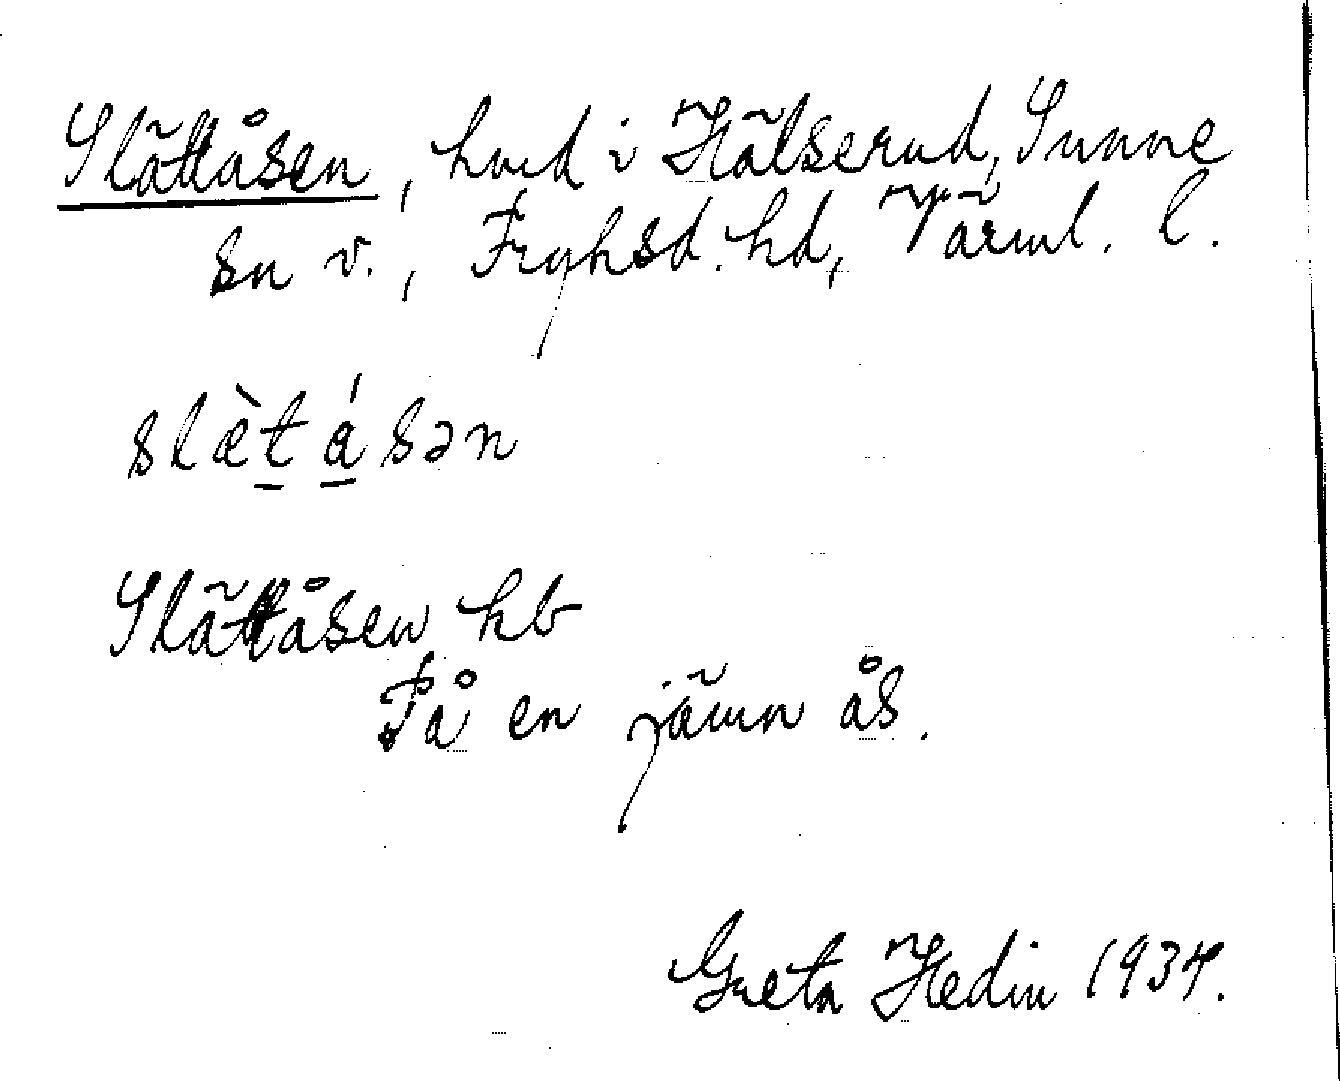 Slättåsen, hmd i Hälserud, Sunne
sn v., Fryksd. hd, Värml. l.
slæ̀t̲á̲sən
Slättåsen hb
På en jämn ås.
Greta Hedin 1934.